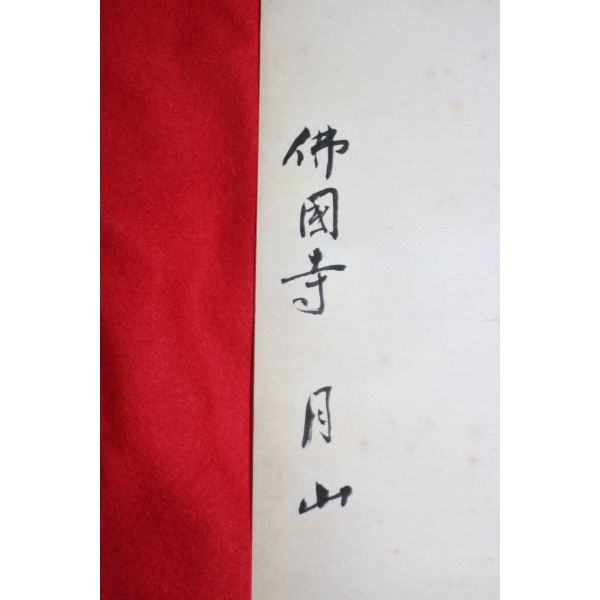 佛國寺 月山